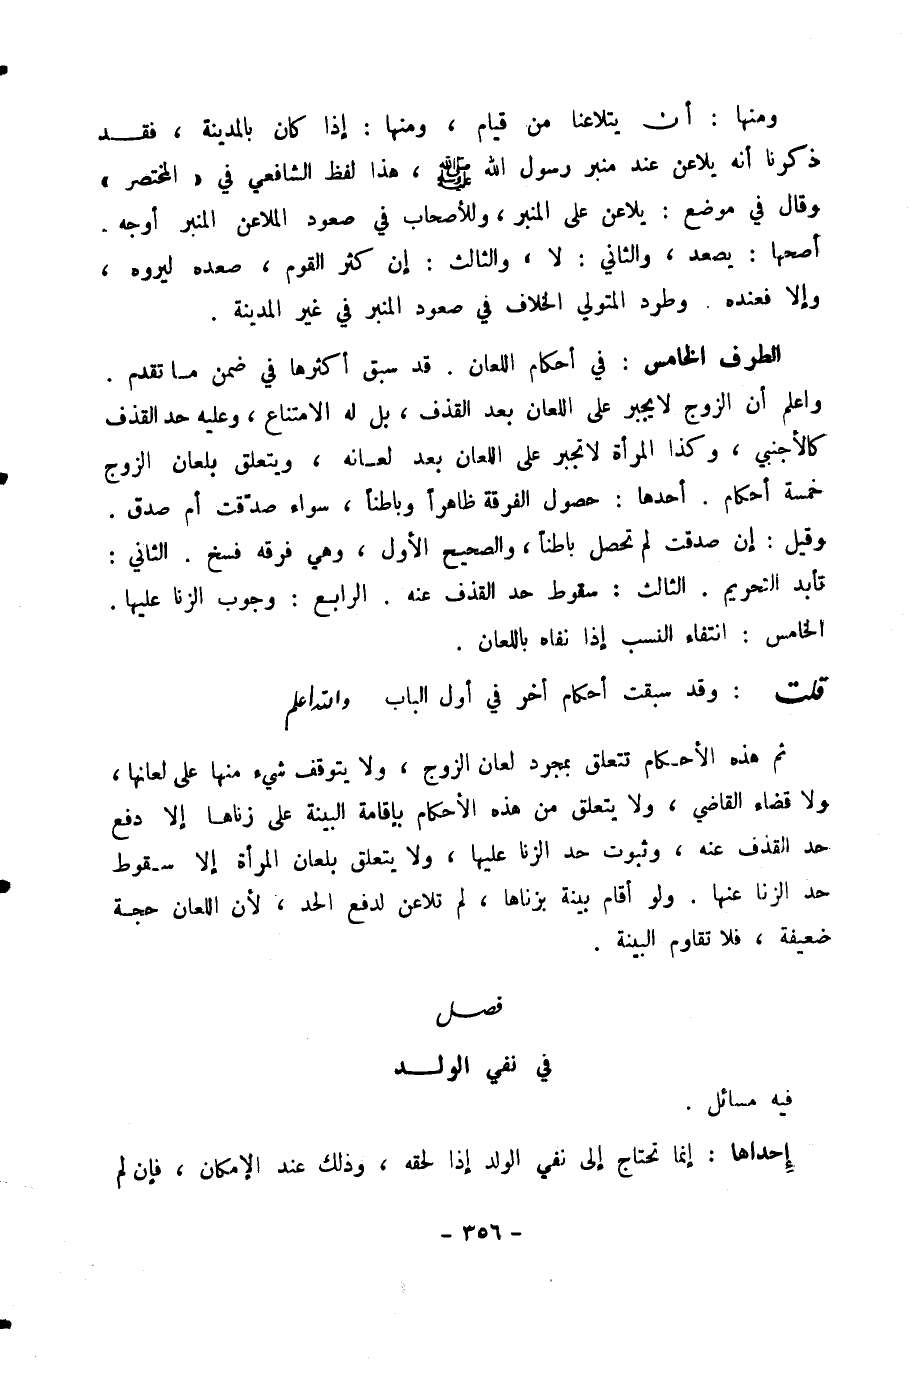 ومنها : أن يتلاعنا من قيام ، ومنها : إذا كان بالمدينة ، فقد
ذكرنا أنه يلاعن عند منبر رسول الله ﷺ ، هذا لفظ الشافعي في « المختصر »
وقال في موضع : يلاعن على المنبر ، وللأصحاب في صعود الملاعن المنبر أوجه .
أصحها : يصعد ، والثاني : لا ، والثالث : إن كثر القوم ، صعده ليروه ،
وإلا فعنده . وطرد المتولي الخلاف في صعود المنبر في غير المدينة .
الطرف الخامس : في أحكام اللعان . قد سبق أكثرها في ضمن ما تقدم .
واعلم أن الزوج لا يجبر على اللعان بعد القذف ، بل له الامتناع ، وعليه حد القذف
كالأجنبي ، وكذا المرأة لا تجبر على اللعان بعد لعانه ، ويتعلق بلعان الزوج
خمسة أحكام . أحدها : حصول الفرقة ظاهراً وباطناً ، سواء صدّقت أم صدق .
وقيل : إن صدقت لم تحصل باطناً ، والصحيح الأول ، وهي فرقه فسخ . الثاني :
تأبد التحريم . الثالث : سقوط حد القذف عنه . الرابع : وجوب الزنا عليها .
الخامس : انتفاء النسب إذا نفاه باللعان .
قلت : وقد سبقت أحكام أخر في أول الباب والله أعلم
ثم هذه الأحكام تتعلق بمجرد لعان الزوج ، ولا يتوقف شيء منها على لعانها ،
ولا قضاء القاضي ، ولا يتعلق من هذه الأحكام بإقامة البينة على زناها إلا دفع
حد القذف عنه ، وثبوت حد الزنا عليها ، ولا يتعلق بلعان المرأة إلا سقوط
حد الزنا عنها . ولو أقام بينة بزناها ، لم تلاعن لدفع الحد ، لأن اللعان حجة
ضعيفة ، فلا تقاوم البينة .
فصل
في نفي الولد
فيه مسائل .
إحداها : إنما تحتاج إلى نفي الولد إذا لحقه ، وذلك عند الإمكان ، فإن لم
- ٣٥٦ -